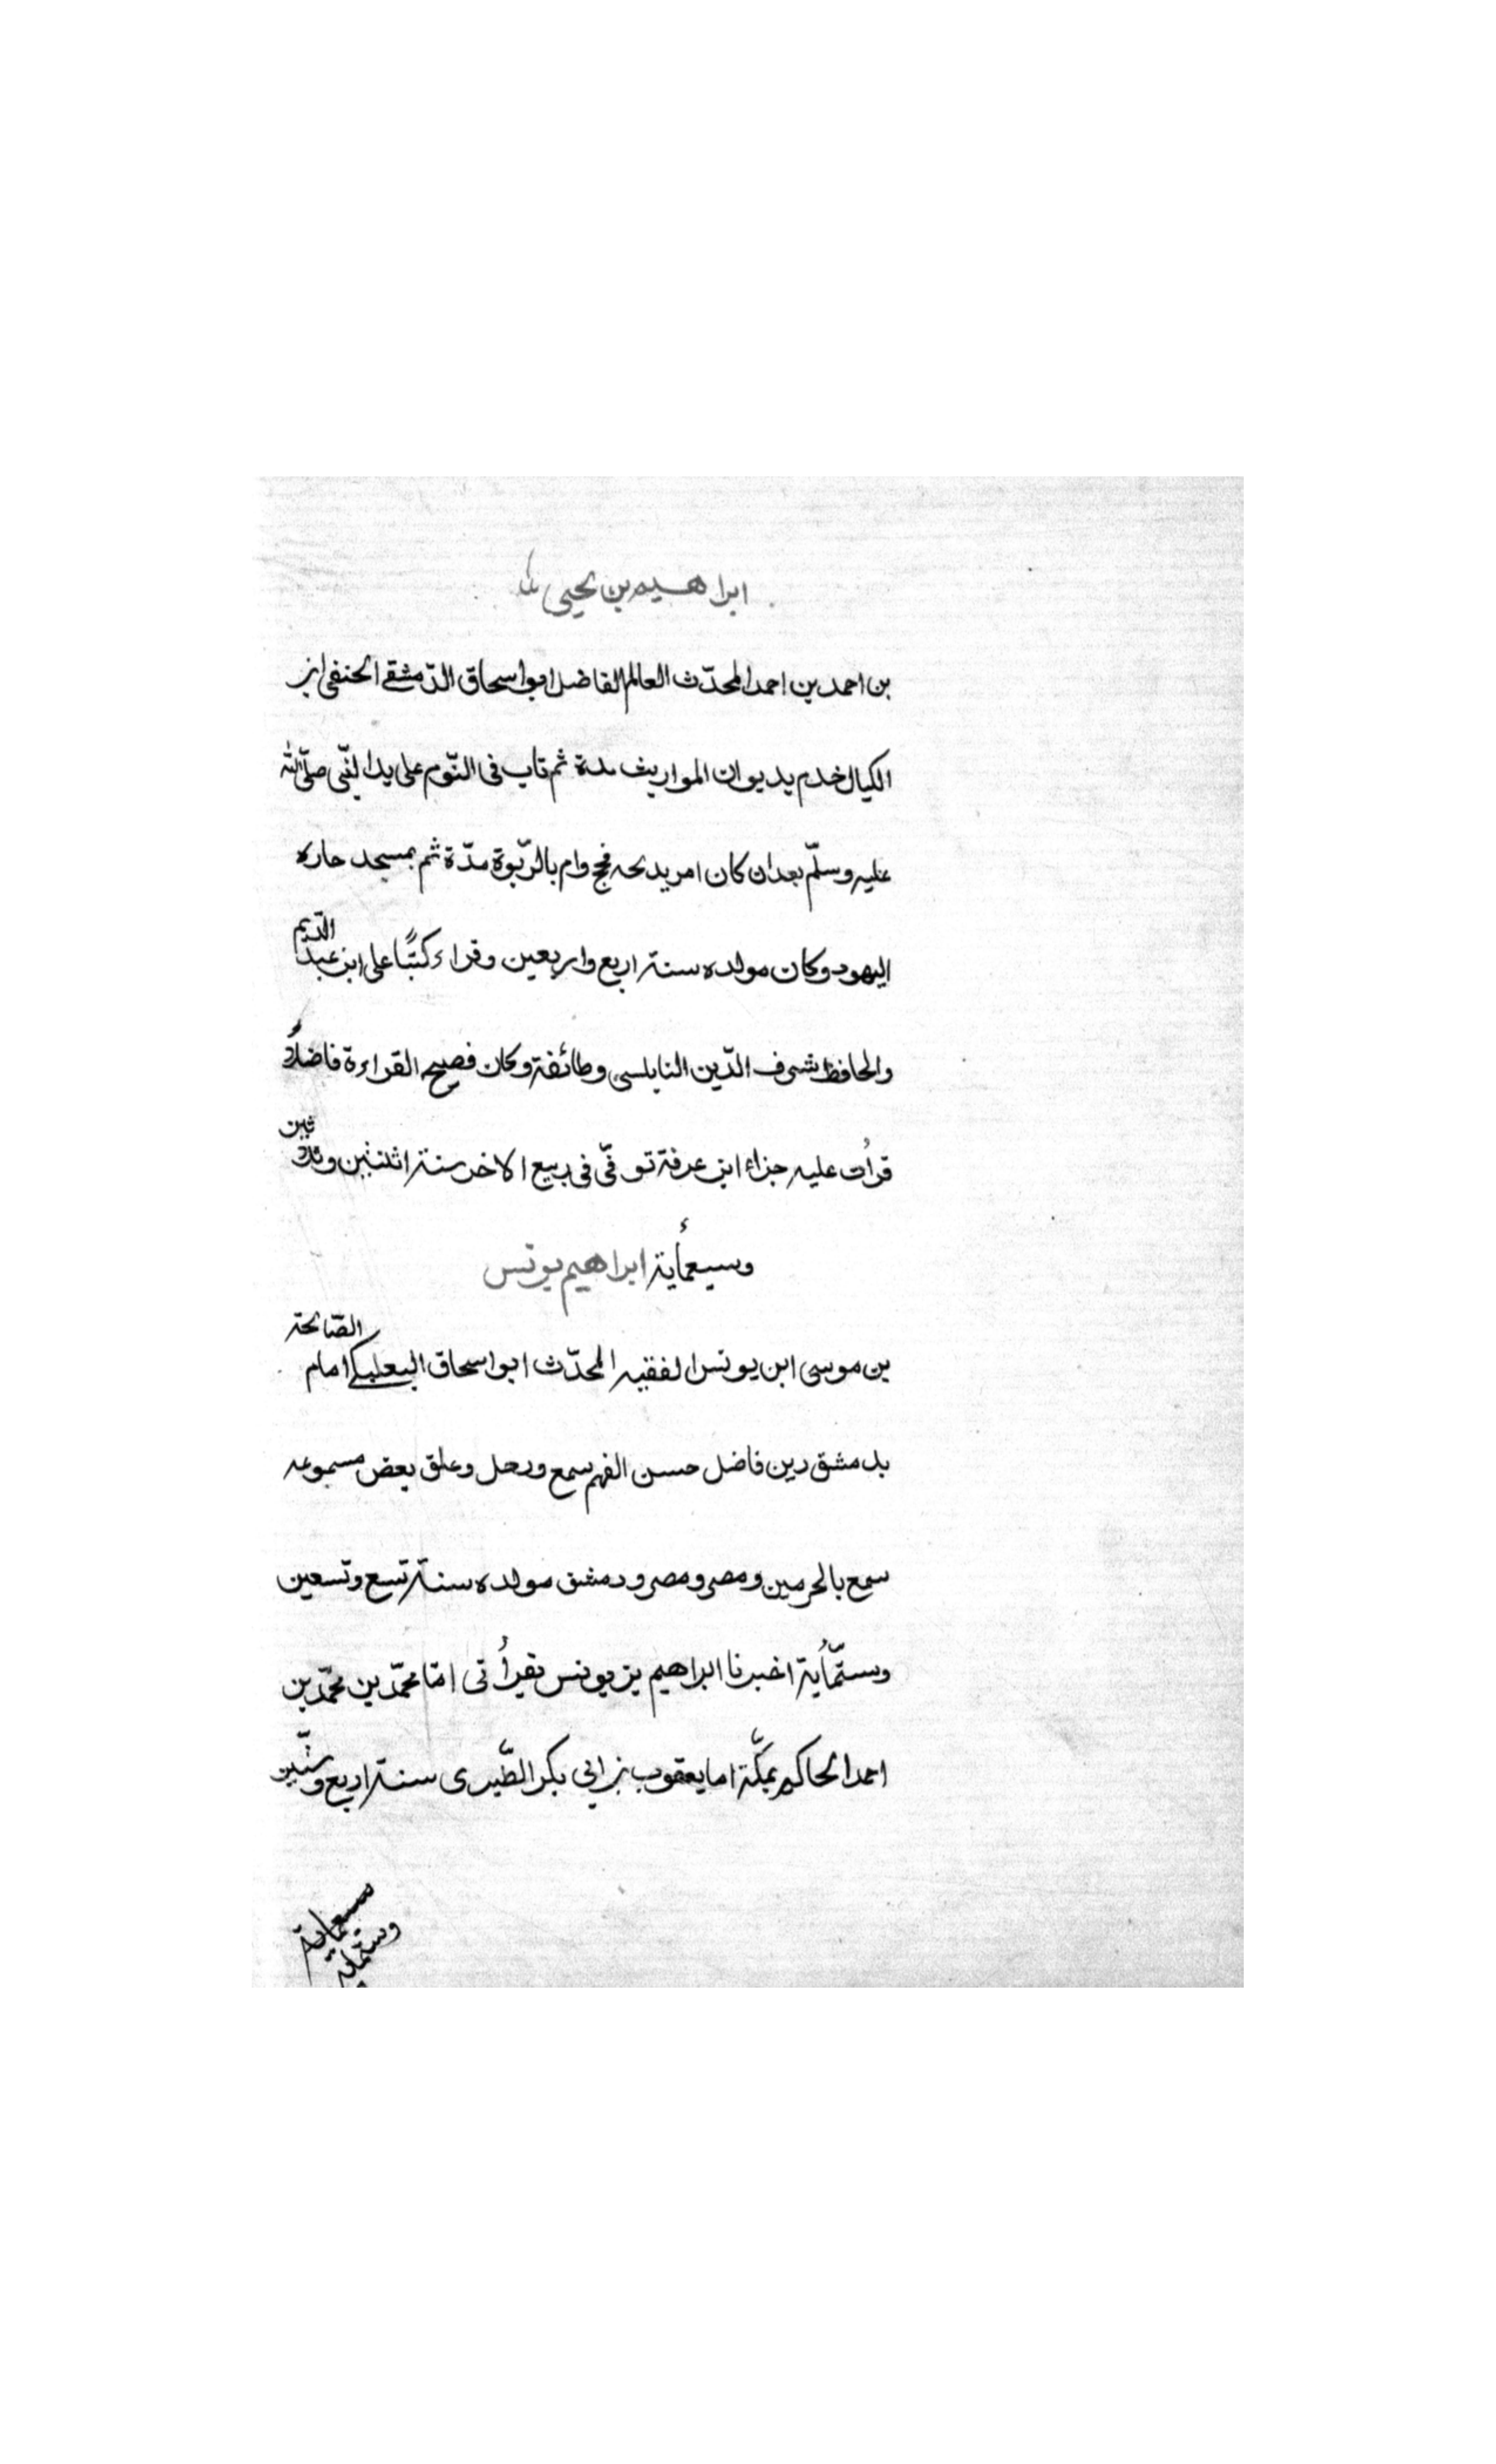 ابراهيم بن يحيى
بن احمد بن احمد المحدّث العالم الفاضل ابو اسحاق الدّمشقي الحنفي ابن
الكيال خدم بديوان المواريث مدة ثم تاب في النّوم على يد النّبي صلّى الله
عليه وسلّم بعد ان كان امر يديحه فحج وام بالرّبوة مدّة ثم بمسجد حاره
اليهود وكان مولده سنة اربع واربعين وقراء كتبًا على ابن عبد الدّيم
والحافظ شرف الدّين النابلسي وطائفة وكان فصيح القراءة فاضلاً
قرأت عليه جزاء ابن عرفة توفّي في ربيع الاخر سنة اثنتين وثلاثين
وسبعمأية ابراهيم يونس
بن موسى ابن يونس الفقيه المحدّث ابو اسحاق البعلبكي امام الصّالحة
بدمشق دين فاضل حسن الفهم سمع ورحل وعلق بعض مسموعه
سمع بالحرمين ومصر ومصر ودمشق مولده سنة تسع وتسعين
وستّمأية اخبرنا ابراهيم بن يونس بقرأتي انّا محمّد بن محمّد بن
احمد الحاكم بمكّة انا يعقوب بن ابي بكر الطّبري سنة اربع وستّين
سبعماية
وستماية